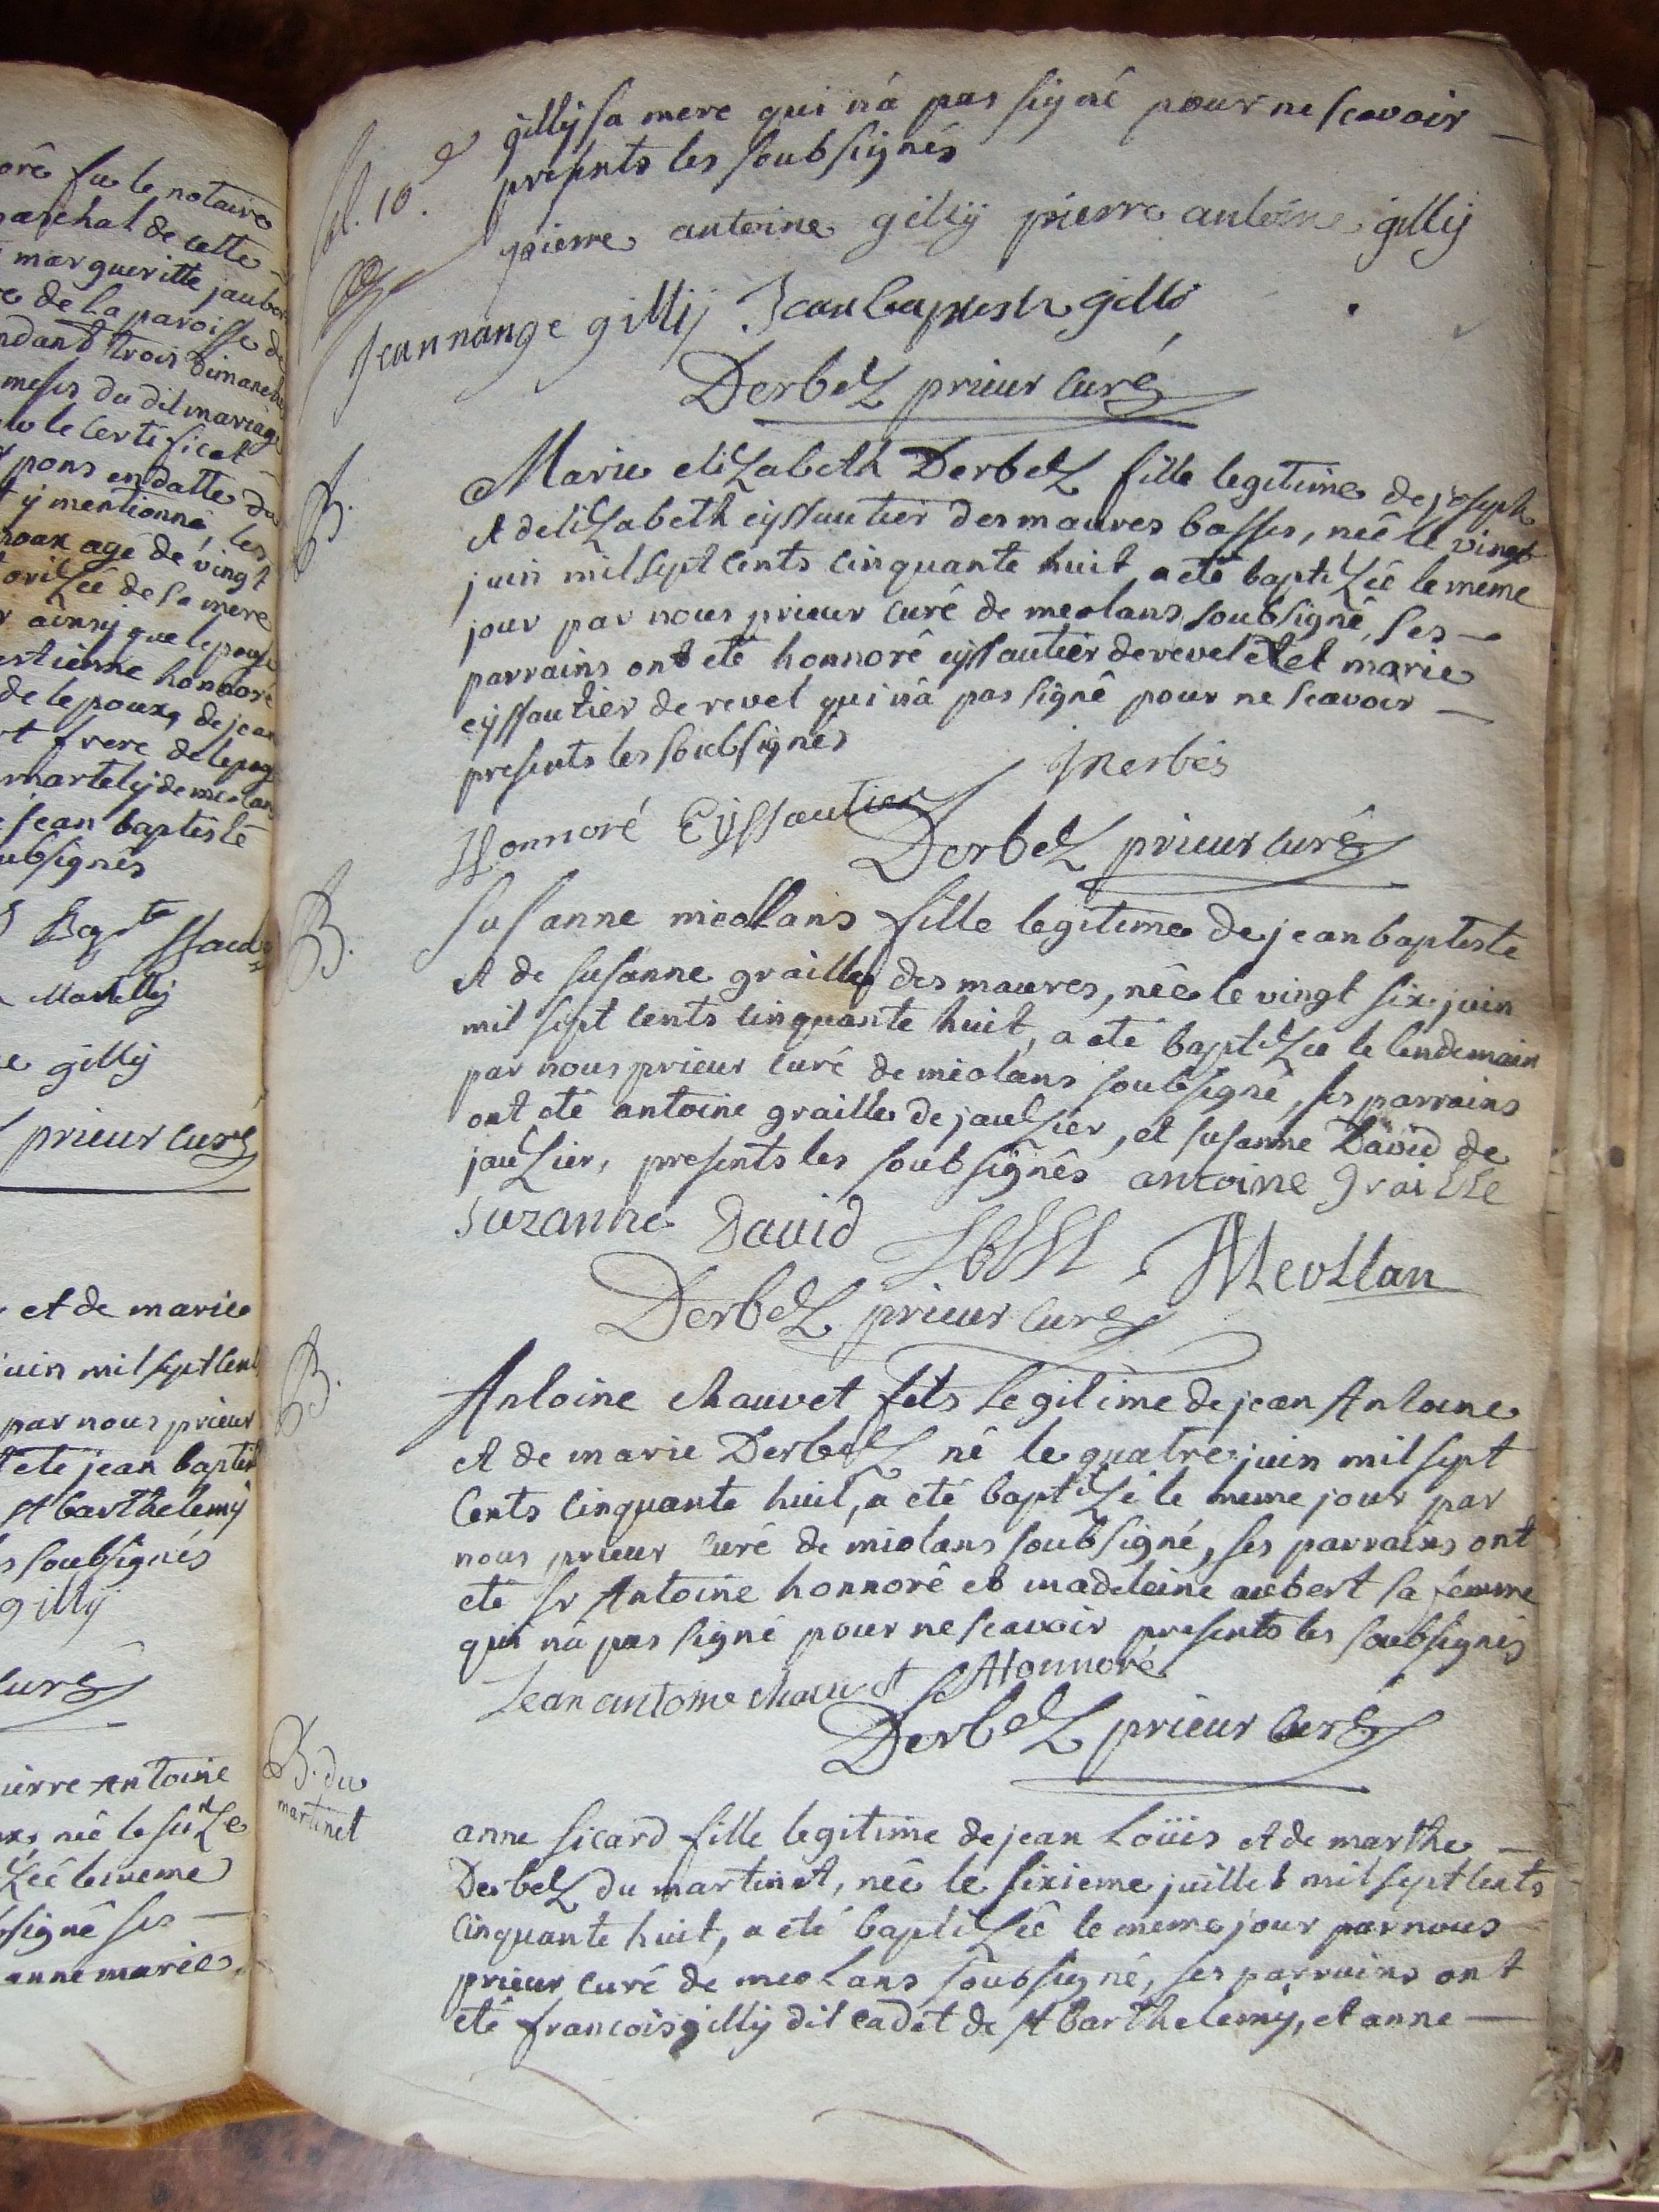 oré fu le notaire
marchal de cette
margueritte jaubert
de la paroisse de
ndant trois dimanches
messes du dit mariage
le certificat
pons en datte du
y mentionné, les
agé de vingt
orizée de sa mere
ainsy que lepouse
estienne honnoré
de lepoux, de jean
frere de lepoux
martely de meolans
jean baptiste
ubsignés
Bapte
Martelly
gilly
prieur curé
et de marie
juin mil sept cent
par nous prieur
eté jean baptist
St barthelemy
soubsignés
gilly
curé
ierre Antoine
née le
zée le meme
signé ses
anne marie
fol. 10.e
gilly sa mere qui n'a pas signé pour ne scavoir
presents les soubsignés
pierre antoine gilly pierre antoine gilly
Jean nange gilly Jean baptiste gilly
Derbez prieur curé
B.
Marie elizabeth Derbez fille legitime de joseph
et delizabeth eyssautier des maures basses, née le vingt
juin mil sept cents cinquante huit, a eté baptizée le meme
jour par nous prieur curé de meolans soubsigné, ses
parrains ont eté honnoré eyssautier de revel et marie
eyssautier de revel qui n'a pas signé pour ne scavoir
presents les soubsignés
Honnoré Eyssautier
Derbez prieur curé
B.
Susanne meollans fille legitime de jean baptiste
et de susanne graille des maures, née le vingt six juin
mil sept cents cinquante huit, a eté baptizée le lendemain
par nous prieur curé de meolans soubsigné, ses parrains
ont eté antoine graille de jauzier, et susanne David de
jauzier, presents les soubsignés antoine graille
Suzanne David Meollan
Derbez prieur curé
B.
Antoine chauvet fils legitime de jean Antoine
et de marie Derbez né le quatre juin mil sept
cents cinquante huit, a eté baptizé le meme jour par
nous prieur curé de meolans soubsigné, ses parrains ont
eté sr Antoine honnoré et madeleine aubert sa femme
qui n'a pas signé pour ne scavoir presents les soubsignés
Jean antoine chauvet Honnoré
Derbez prieur curé
B. du
martinet
anne sicard fille legitime de jean Loüis et de marthe
Derbez du martinet, née le sixieme juillet mil sept cents
cinquante huit, a eté baptizée le meme jour par nous
prieur curé de meolans soubsigné, ses parrains ont
eté francois gilly dit cadet de St barthelemy, et anne